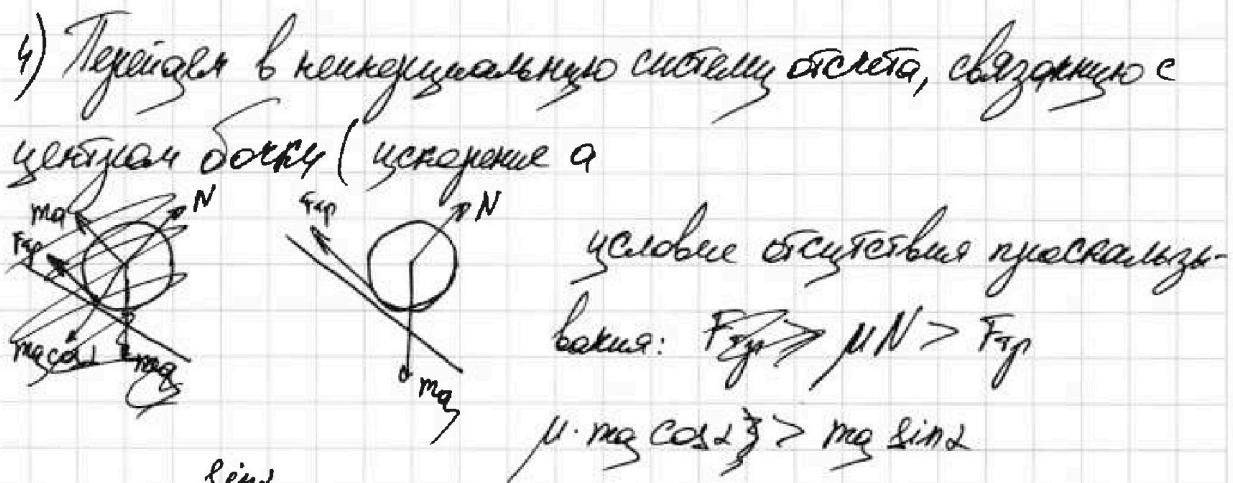 4) Перейдем в неинерциальную систему отсчета, связанную с
центром бочки ( ускорение a
ma N Fтр N
Fтр
условие отсутствия проскальзы-
вания: μN > Fтр
mg cosα mg mg
μ·mg cosα > mg sinα
sinα